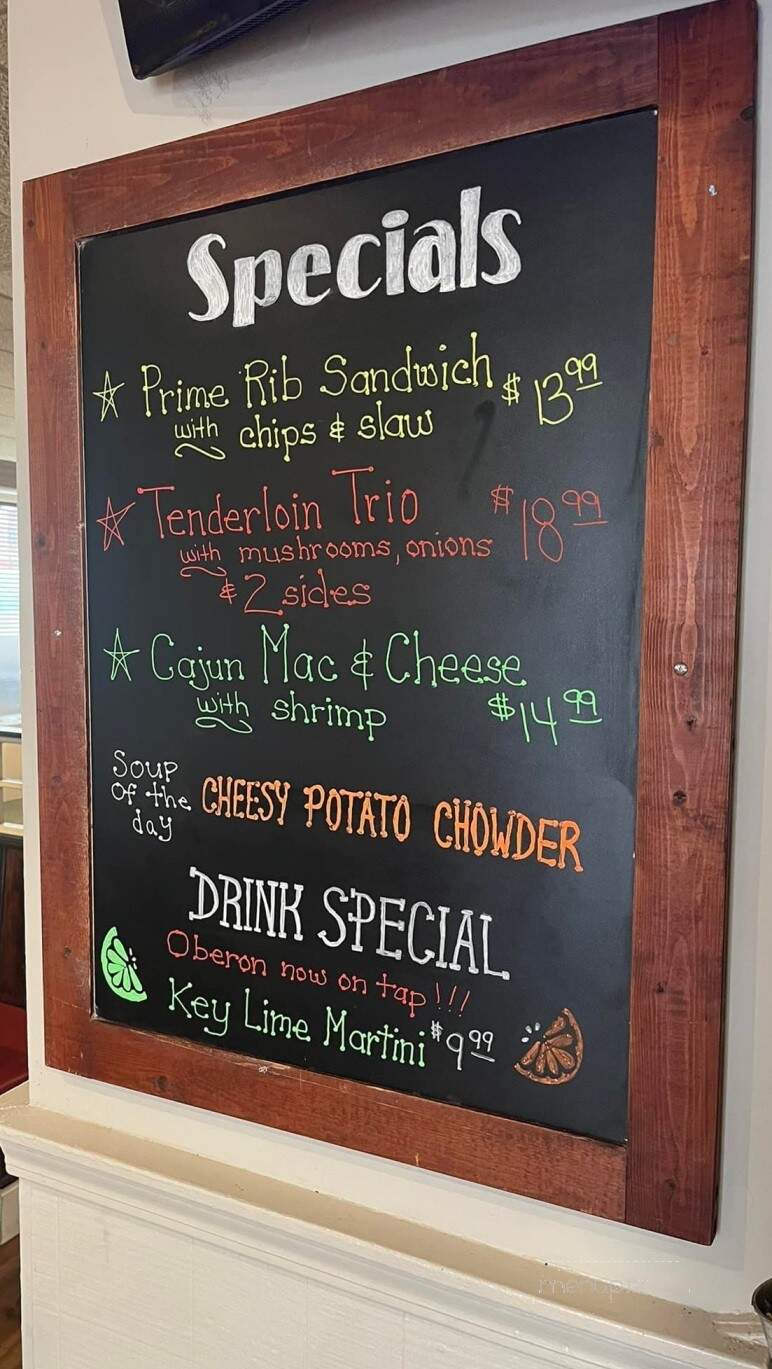 Specials
Prime Rib Sandwich $13.99
with chips & slaw
Tenderloin Trio $18.99
with mushrooms, onions
& 2 sides
Cajun Mac & Cheese
with shrimp $14.99
Soup
of the
day
CHEESY POTATO CHOWDER
DRINK SPECIAL
Oberon now on tap!!!
Key Lime Martini $9.99